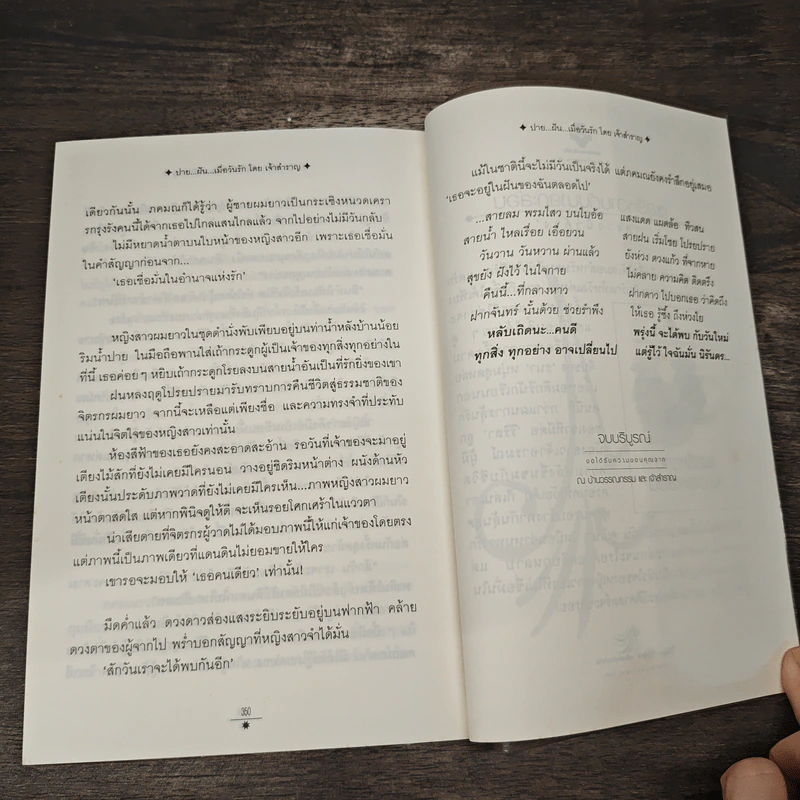 ✦ ปาย...ฝัน...เมื่อวันรัก โดย เจ้าสำราญ ✦
เดียวกันนั้น ภคมณก็ได้รู้ว่า ผู้ชายผมยาวเป็นกระเซิงหนวดเครา
รกรุงรังคนนี้ได้จากเธอไปไกลแสนไกลแล้ว จากไปอย่างไม่มีวันกลับ
ไม่มีหยาดน้ำตาบนใบหน้าของหญิงสาวอีก เพราะเธอเชื่อมั่น
ในคำสัญญาก่อนจาก...
‘เธอเชื่อมั่นในอำนาจแห่งรัก’
หญิงสาวผมยาวในชุดดำนั่งพับเพียบอยู่บนท่าน้ำหลังบ้านน้อย
ริมน้ำปาย ในมือถือพานใส่เถ้ากระดูกผู้เป็นเจ้าของทุกสิ่งทุกอย่างใน
ที่นี้ เธอค่อยๆ หยิบเถ้ากระดูกโรยลงบนสายน้ำอันเป็นที่รักยิ่งของเขา
ฝนหลงฤดูโปรยปรายมารับทราบการคืนชีวิตสู่ธรรมชาติของ
จิตรกรผมยาว จากนี้จะเหลือแต่เพียงชื่อ และความทรงจำที่ประทับ
แน่นในจิตใจของหญิงสาวเท่านั้น
ห้องสีฟ้าของเธอยังคงสะอาดสะอ้าน รอวันที่เจ้าของจะมาอยู่
เตียงไม้สักที่ยังไม่เคยมีใครนอน วางอยู่ชิดริมหน้าต่าง ผนังด้านหัว
เตียงนั้นประดับภาพวาดที่ยังไม่เคยมีใครเห็น...ภาพหญิงสาวผมยาว
หน้าตาสดใส แต่หากพินิจดูให้ดี จะเห็นรอยโศกเศร้าในแววตา
น่าเสียดายที่จิตรกรผู้วาดไม่ได้มอบภาพนี้ให้แก่เจ้าของโดยตรง
แต่ภาพนี้เป็นภาพเดียวที่แดนดินไม่ยอมขายให้ใคร
เขารอจะมอบให้ ‘เธอคนเดียว’ เท่านั้น!
มืดค่ำแล้ว ดวงดาวส่องแสงระยิบระยับอยู่บนฟากฟ้า คล้าย
ดวงตาของผู้จากไป พร่ำบอกสัญญาที่หญิงสาวจำได้มั่น
‘สักวันเราจะได้พบกันอีก’
350
✦ ปาย...ฝัน...เมื่อวันรัก โดย เจ้าสำราญ ✦
แม้ในชาตินี้จะไม่มีวันเป็นจริงได้ แต่ภคมณยังคงรำลึกอยู่เสมอ
‘เธอจะอยู่ในฝันของฉันตลอดไป’
...สายลม พรมไสว บนใบอ้อ แสงแดด แผดล้อ ทิวสน
สายน้ำ ไหลเรื่อย เอื่อยวน สายฝน เริ่มโชย โปรยปราย
วันวาน วันหวาน ผ่านแล้ว ยังห่วง ดวงแก้ว ที่จากหาย
สุขยัง ฝังไว้ ในใจกาย ไม่คลาย ความคิด ติดตรึง
คืนนี้...ที่กลางหาว ฝากดาว ไปบอกเธอ ว่าคิดถึง
ฝากจันทร์ นั้นด้วย ช่วยรำพึง ให้เธอ รู้ซึ้ง ถึงห่วงใย
หลับเถิดนะ...คนดี พรุ่งนี้ จะได้พบ กับวันใหม่
ทุกสิ่ง ทุกอย่าง อาจเปลี่ยนไป แต่รู้ไว้ ใจฉันมั่น นิรันดร...
จบบริบูรณ์
ขอได้รับความขอบคุณจาก
ณ บ้านวรรณกรรม และ เจ้าสำราญ